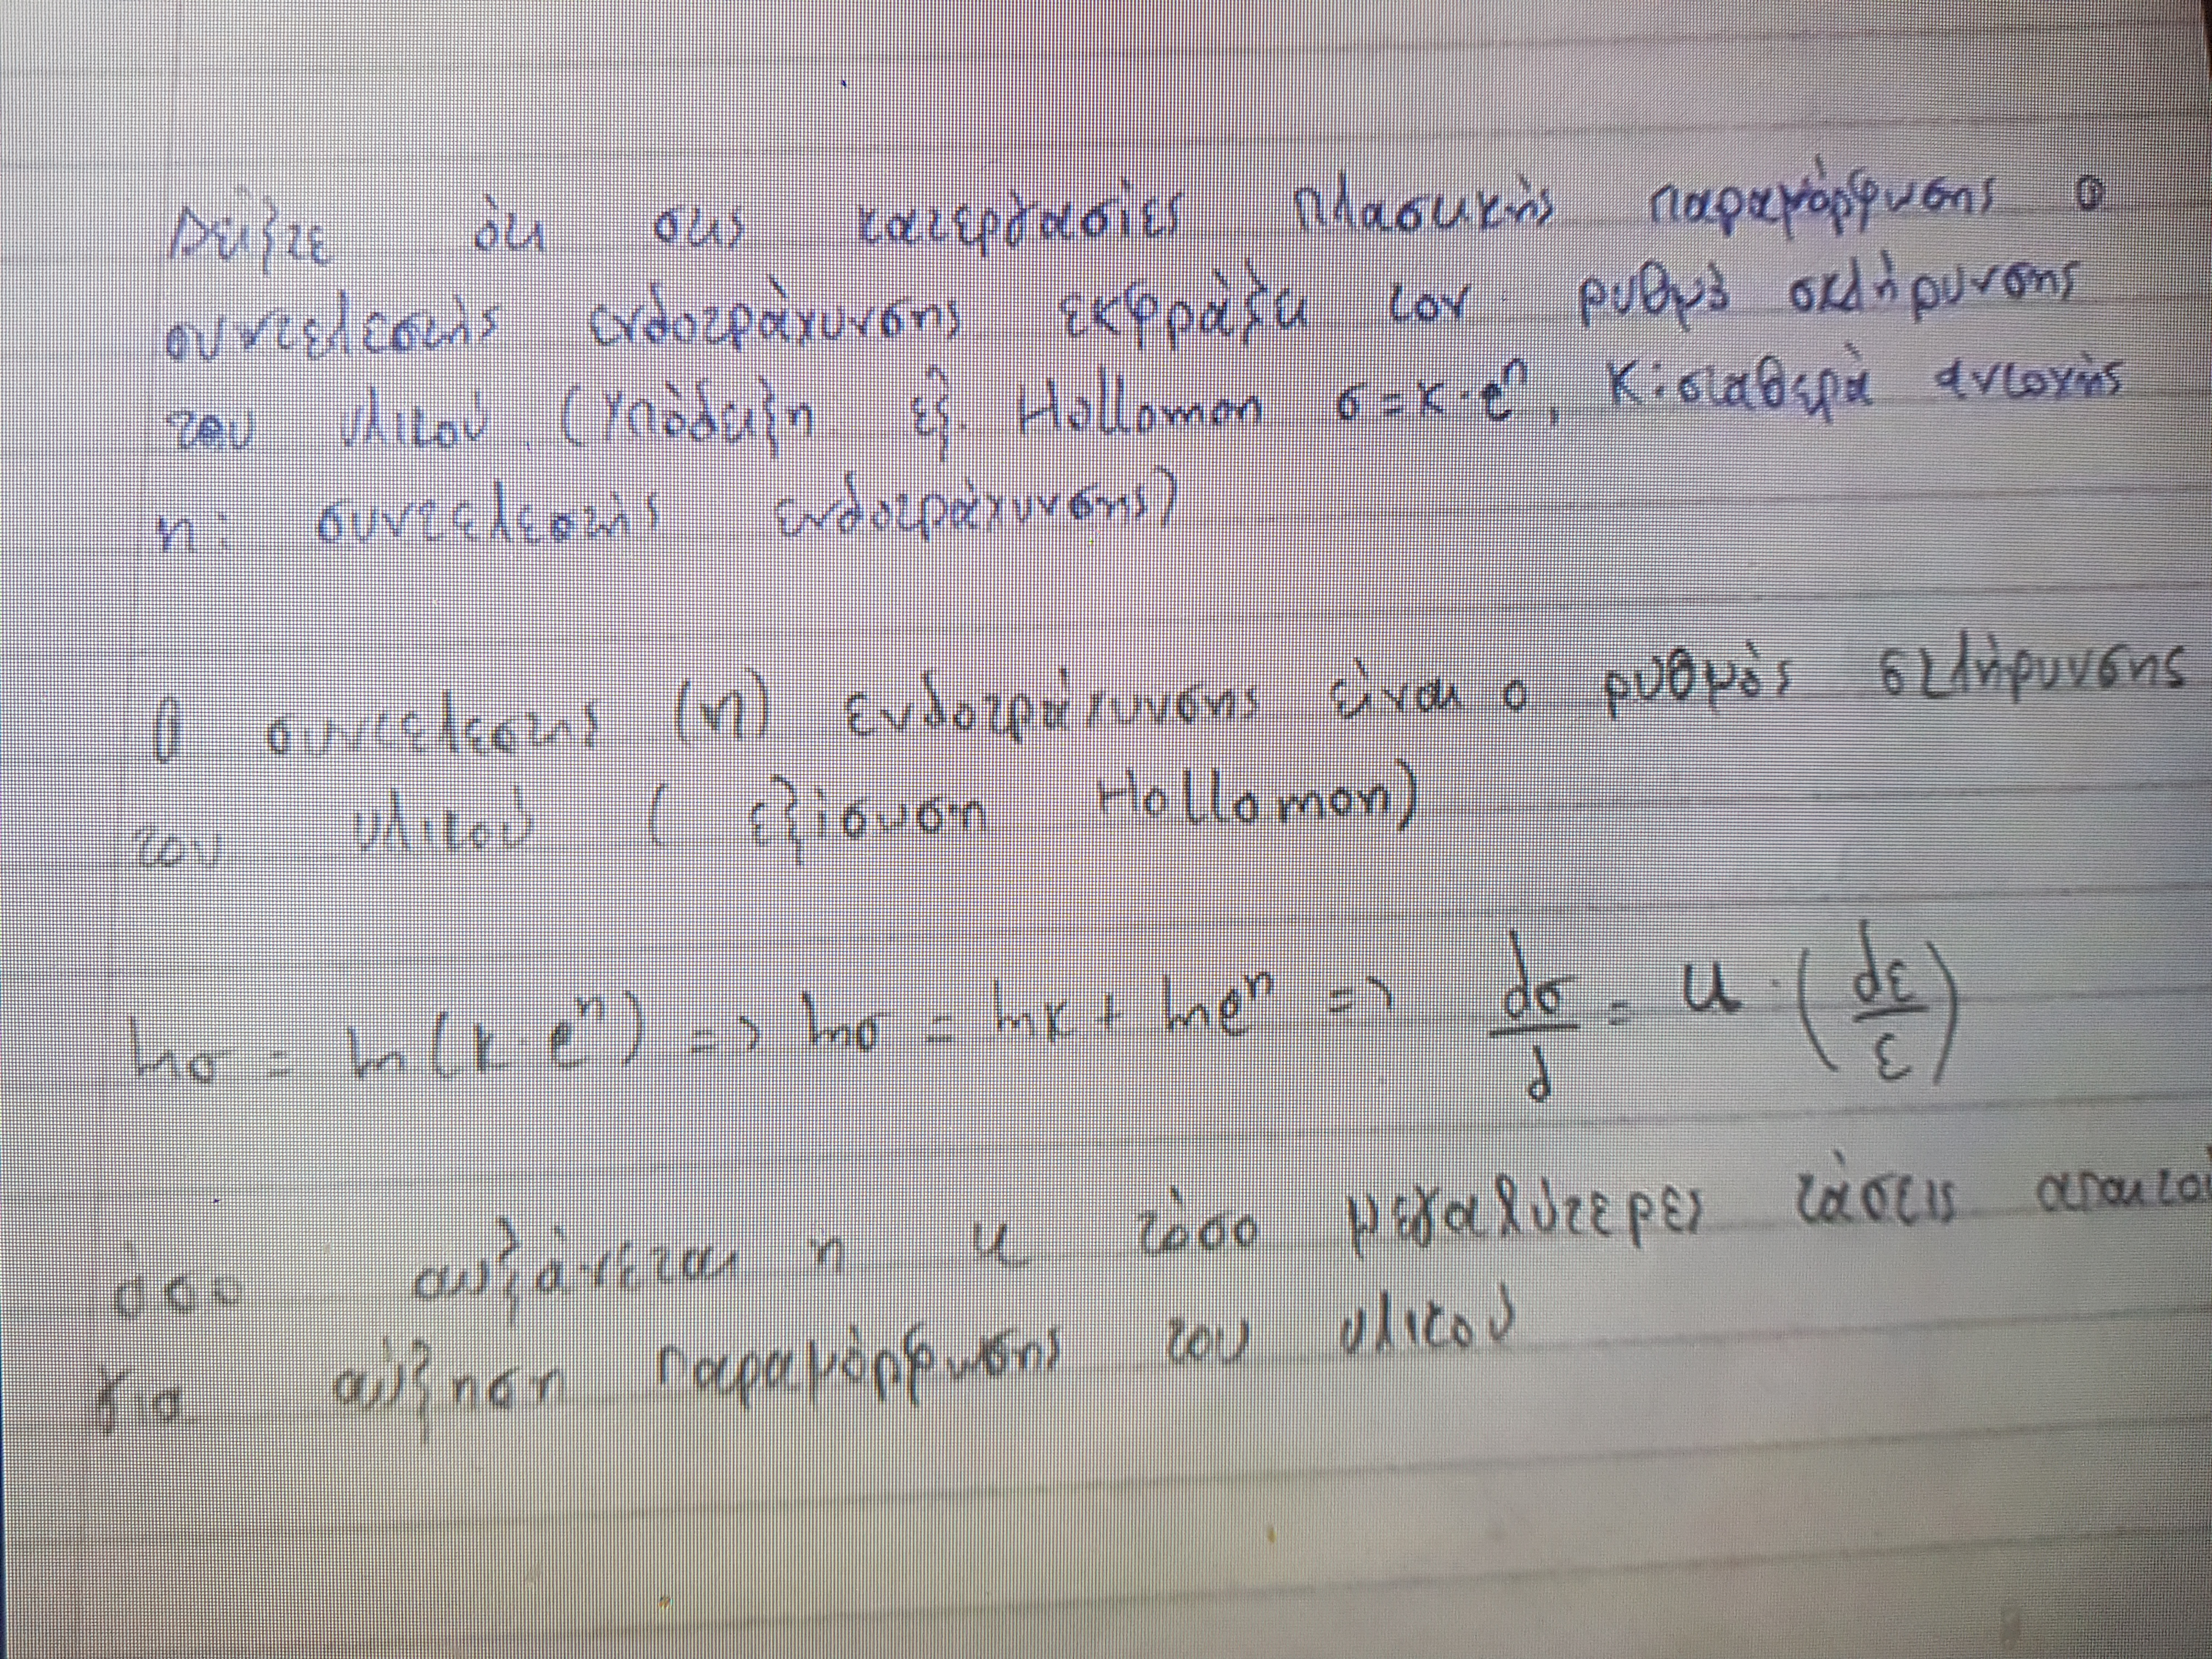 Δείξτε ότι στις κατεργασίες πλαστικής παραμόρφωσης ο
συντελεστής ενδοτράχυνσης εκφράζει τον ρυθμό σκλήρυνσης
του υλικού. (Υπόδειξη εξ. Hollomon σ = κ · e^n, Κ: σταθερά αντοχής
n: συντελεστής ενδοτράχυνσης)
Ο συντελεστης (n) ενδοτράχυνσης είναι ο ρυθμός σκλήρυνσης
του υλικού ( εξίσωση Hollomon)
lnσ = ln(κ · e^n) => lnσ = lnκ + lne^n => dσ/d = u · (dε/ε)
όσο αυξάνεται η u τόσο μεγαλύτερες τάσεις
για αύξηση παραμόρφωσης του υλικού